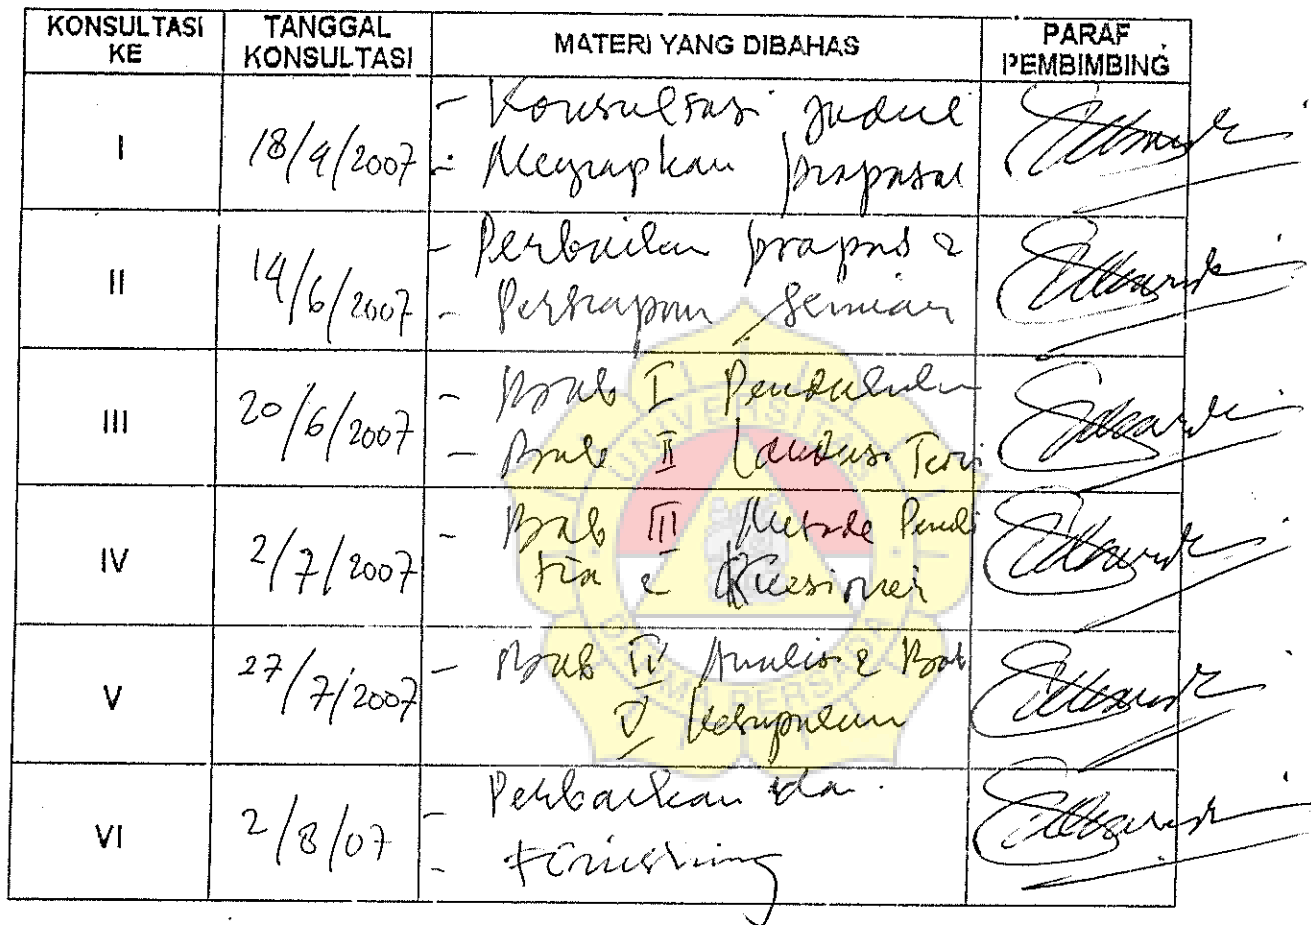 KONSULTASI KE
TANGGAL KONSULTASI
MATERI YANG DIBAHAS
PARAF PEMBIMBING
I
18/4/2007
- Konsultasi Judul
- Menyiapkan proposal
II
14/6/2007
- Perbaikan proposal &
- Persiapan Seminar
III
20/6/2007
- Bab I Pendahuluan
- Bab II Landasan Teori
IV
2/7/2007
- Bab III Metode Peneli
tian & Kuesioner
V
27/7/2007
- Bab IV Analisis & Bab
V Kesimpulan
VI
2/8/07
- Perbaikan dan
- finishing
UNIVERSITAS
DARMA PERSADA